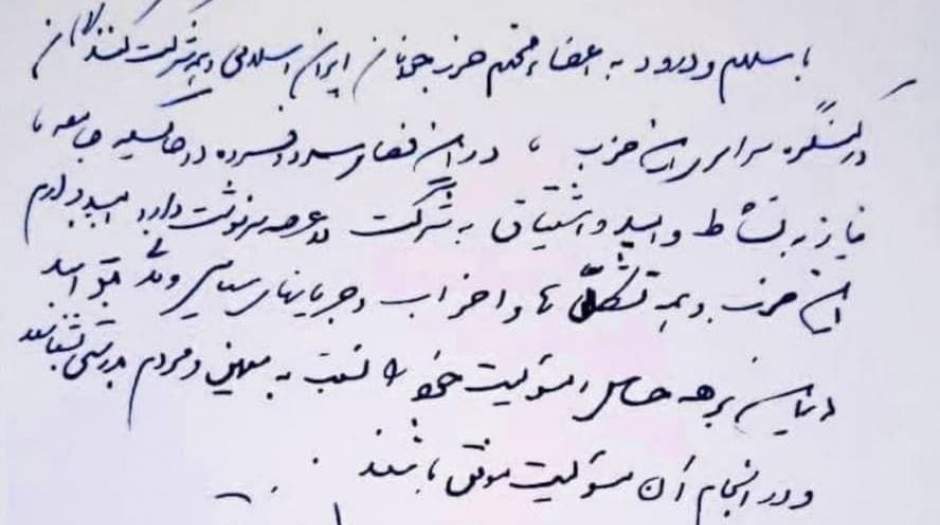 با سلام و درود به اعضاء محترم حزب جوانان ایران اسلامی و همه شرکت کنندگان
در کنگره سراسری این حزب ، در این فضای سرد و افسرده در حاکمیت جامعه ما
نیاز به نشاط و امید و اشتیاق به شرکت در عرصه سرنوشت دارد. امیدوارم
این حزب و همه تشکل ها و احزاب و جریانهای سیاسی و مدنی بتوانند
در این برهه حساس مسئولیت خود را نسبت به میهن و مردم بدرستی بشناسند
و در انجام آن مسئولیت موفق باشند